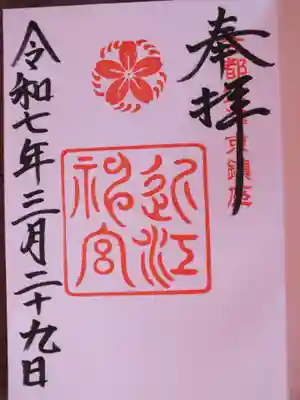 奉拝
都 京鎮座
近江
神宮
令和七年三月二十九日